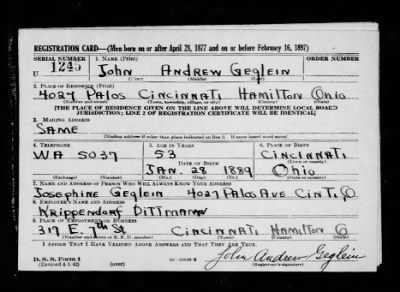 REGISTRATION CARD—(Men born on or after April 28, 1877 and on or before February 16, 1897)
SERIAL NUMBER 1. NAME (Print) ORDER NUMBER
U 1245 John Andrew Geglein
(First) (Middle) (Last)
2. PLACE OF RESIDENCE (Print)
4027 Palos Cincinnati Hamilton Ohio
(Number and street) (Town, township, village, or city) (County) (State)
[THE PLACE OF RESIDENCE GIVEN ON THE LINE ABOVE WILL DETERMINE LOCAL BOARD
JURISDICTION; LINE 2 OF REGISTRATION CERTIFICATE WILL BE IDENTICAL]
3. MAILING ADDRESS
Same
(Mailing address if other than place indicated on line 2. If same insert word same)
4. TELEPHONE 5. AGE IN YEARS 6. PLACE OF BIRTH
WA 5037 53 Cincinnati
DATE OF BIRTH (Town or county)
JAN. 28 1889 Ohio
(Exchange) (Number) (Mo.) (Day) (Yr.) (State or country)
7. NAME AND ADDRESS OF PERSON WHO WILL ALWAYS KNOW YOUR ADDRESS
Josephine Geglein 4027 Palos Ave Cinti, O
8. EMPLOYER'S NAME AND ADDRESS
Krippendorf Dittmann
9. PLACE OF EMPLOYMENT OR BUSINESS
317 E. 7th St Cincinnati Hamilton O
(Number and street or R. F. D. number) (Town) (County) (State)
I AFFIRM THAT I HAVE VERIFIED ABOVE ANSWERS AND THAT THEY ARE TRUE.
D. S. S. Form 1 John Andrew Geglein
(Revised 4-1-42) (over) (Registrant's signature)